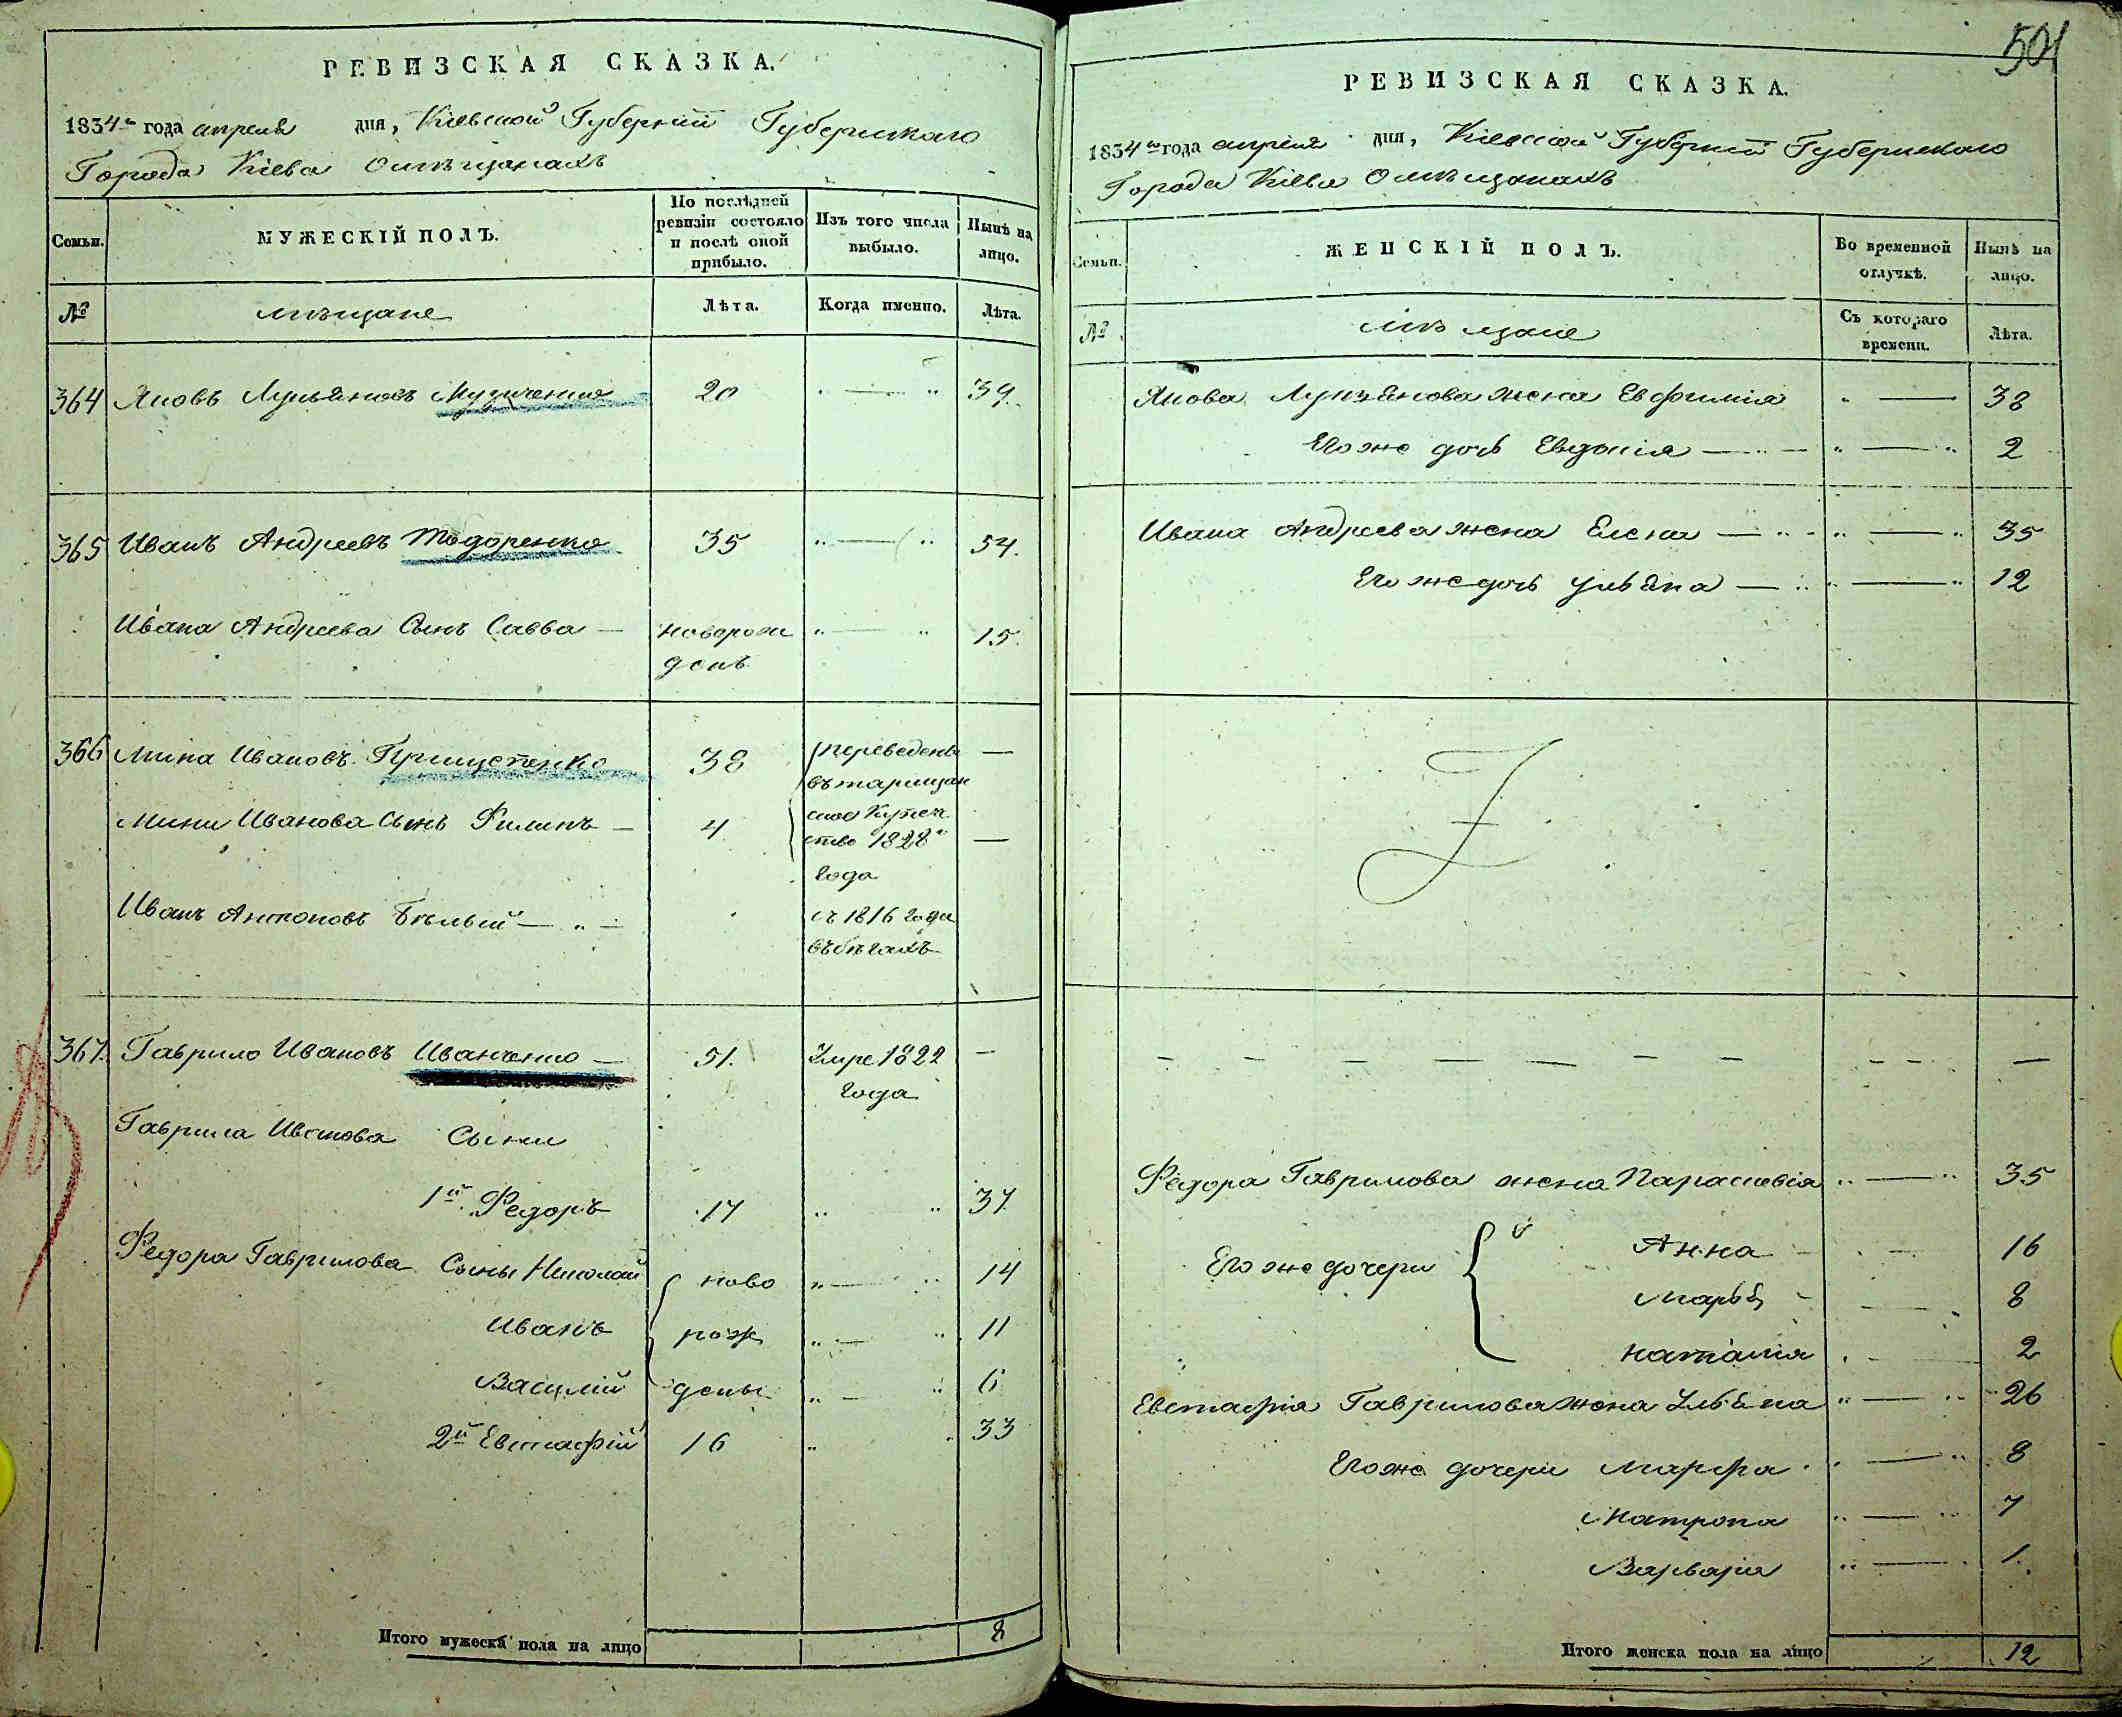 РЕВИЗСКАЯ СКАЗКА.
1834го года апреля дня, Кіевской Губерніи Губернскаго
Города Кіева О мѣщанахъ
Семьи.
МУЖЕСКІЙ ПОЛЪ.
По послѣдней ревизіи состояло и послѣ оной прибыло.
Изъ того числа выбыло.
Нынѣ на лицо.
№
мѣщане
Лѣта.
Когда именно.
Лѣта.
364 Яковъ Лукьяновъ 20 „ — „ 39.
365 Иванъ Андреевъ Тодоренко 35 „ — „ 54.
Ивана Андреева Сынъ Савва — новорож „ — „ 15.
денъ
366 Мина Ивановъ Грищенко 38 переведены —
въ таращан
Мини Иванова Сынъ Филипъ — 4 ское Купеч
ство 1828го —
года
Иванъ Антоновъ Бѣлый — „ — съ 1816 года
въ бѣгахъ
367. Гаврило Ивановъ Иванченко — 51. Умре 1822 —
года
Гаврила Иванова Сыни
1й Федоръ 17 „ „ 37
Федора Гаврилова Сыны Николай ново „ — „ 14
Иванъ рож „ — „ 11
Василій дены „ — „ 6
2й Евстафій 16 „ „ 33
Итого мужеска пола на лицо 8
501
РЕВИЗСКАЯ СКАЗКА.
1834го года апреля дня, Кіевской Губерніи Губернскаго
Города Кіева О мѣщанахъ
Семьи.
ЖЕНСКІЙ ПОЛЪ.
Во временной отлучкѣ.
Нынѣ на лицо.
№
мѣщане
Съ котораго времени.
Лѣта.
Якова Лукьянова жена Евфимія „ — 38
Его же дочь Евдокія — „ — „ 2
Ивана Андреева жена Елена — „ — „ 35
Его же дочь Ульяна — „ — „ 12
— — — — — — — — — — —
Федора Гаврилова жена Параскевія „ — „ 35
Его же дочери Анна — 16
Марья — 8
Наталія — 2
Евстафія Гаврилова жена Ульяна „ — „ 26
Его же дочери Марфа „ — „ 8
Матрона „ — „ 7
Варвара „ — 1.
Итого женска пола на лицо 12